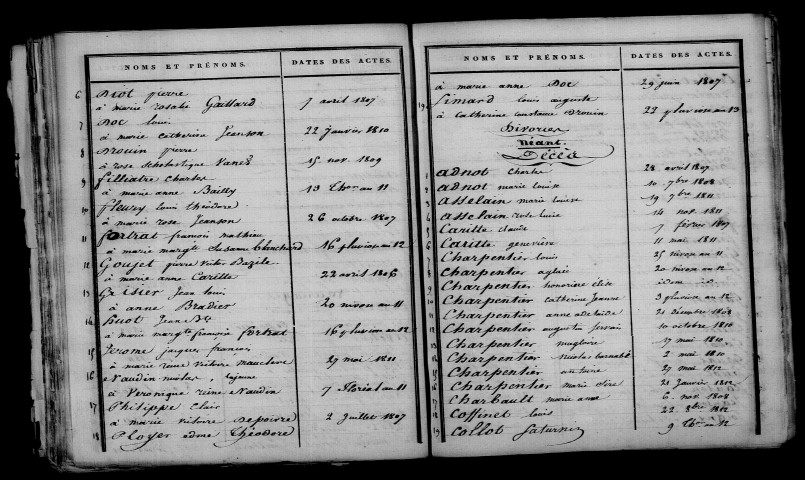 NOMS ET PRÉNOMS. DATES DES ACTES.
6 Diot pierre
à marie rosalie Gaillard 7 avril 1807
7 Doc louis
à marie catherine Jeanson 22 janvier 1810
8 Drouin pierre
à rose scholastique Vanez 15 nov. 1809
9 filliatre charles
à marie anne Bailly 13 th.or an 11
10 fleury louis théodore
à marie rose Jeanson 26 octobre 1807
11 fortrat françois mathieu
à marie margte Susanne Blanchard 16 pluviose an 12
12 Goujet pierre victor Bazile
à marie anne Caritte 22 avril 1806
13 Grisier Jean louis
à anne Bradier 20 nivose an 11
14 huot Jean Bte
à marie margte françoise fortrat 16 pluviose an 12
15 Jerome jacques françois
à marie reine victoire mauclere 27 mai 1811
16 Naudin nicolas, lejeune
à Veronique reine Naudin 7 floréal an 11
17 Philippe Clair
à marie victoire Depoivre 2 juillet 1807
18 Ployer edme Théodore
NOMS ET PRÉNOMS. DATES DES ACTES.
à marie anne Doc 29 juin 1807
19 Simard louis auguste
à catherine constance Drouin 22 pluviose an 13
Divorces
Néant.
Décès
1 adnot charles 28 avril 1807
2 adnot marie louise 10 7bre 1808
3 asselain marie louise 19 7bre 1811
4 asselain rose lucie 14 nov. 1811
5 Caritte claude 7 février 1807
6 Caritte geneviève 11 mai 1811
7 Charpentier louis 25 nivose an 11
8 Charpentier aglaé 20 nivose an 12
9 Charpentier honorine elise idem
10 Charpentier catherine Jeanne 3 pluviose an 12
11 Charpentier anne adelaide 21 décembre 1808
12 Charpentier augustin servais 10 octobre 1810
13 Charpentier magloire 17 mai 1810
14 Charpentier Nicolas barnabé 2 mai 1810
15 Charpentier antoine 27 mai 1812
16 Charpentier marie 21 janvier 1812
17 Charbault marie anne 6 nov. 1808
18 Coffinet louis 22 8bre 1812
19 Collot Saturnin 9 th.or an 12